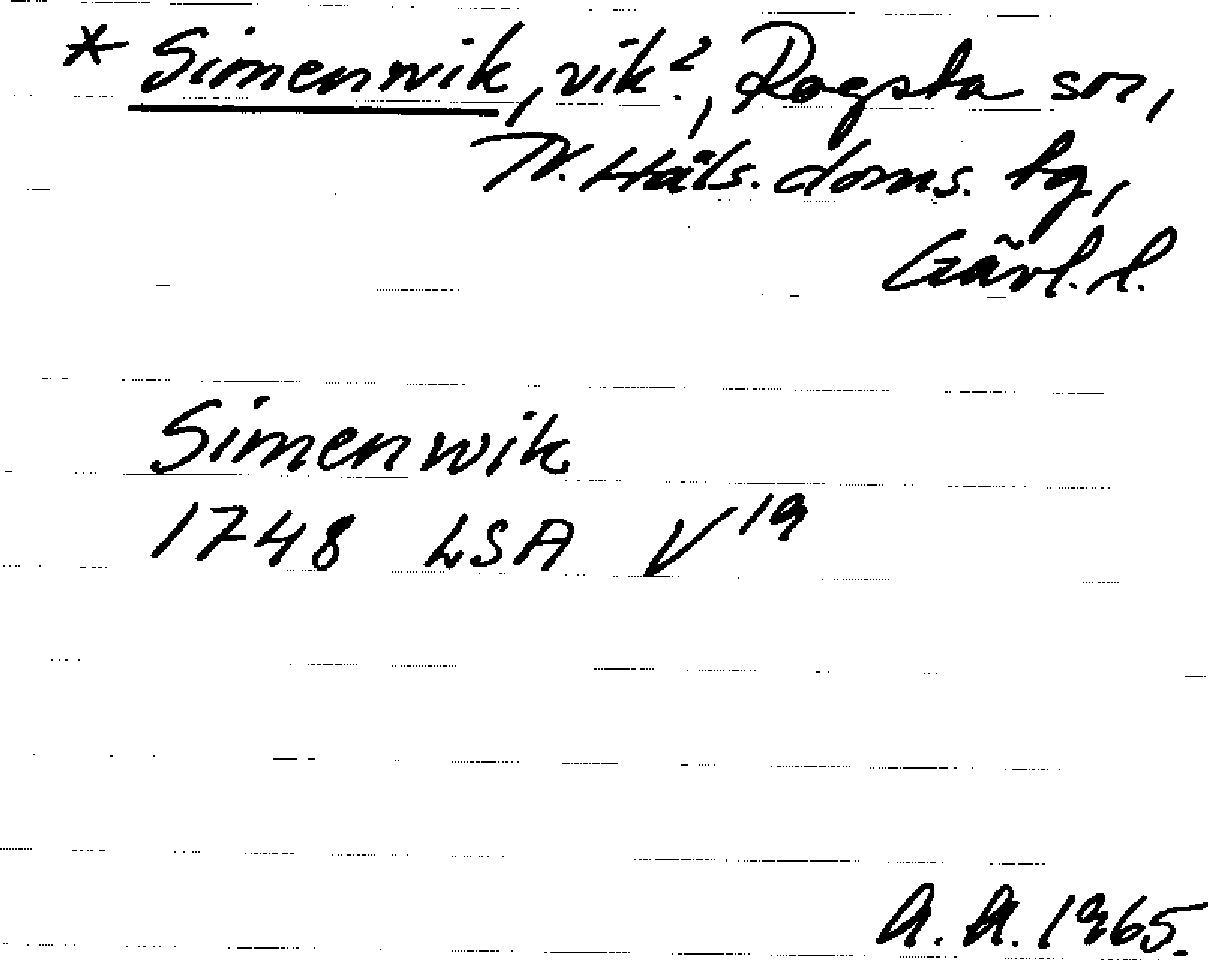 * Simenwik, vik?, Rogsta sn,
N. Häls. doms. tg,
Gävl. l.
Simenwik
1748 LSA V 19
A. A. 1965.